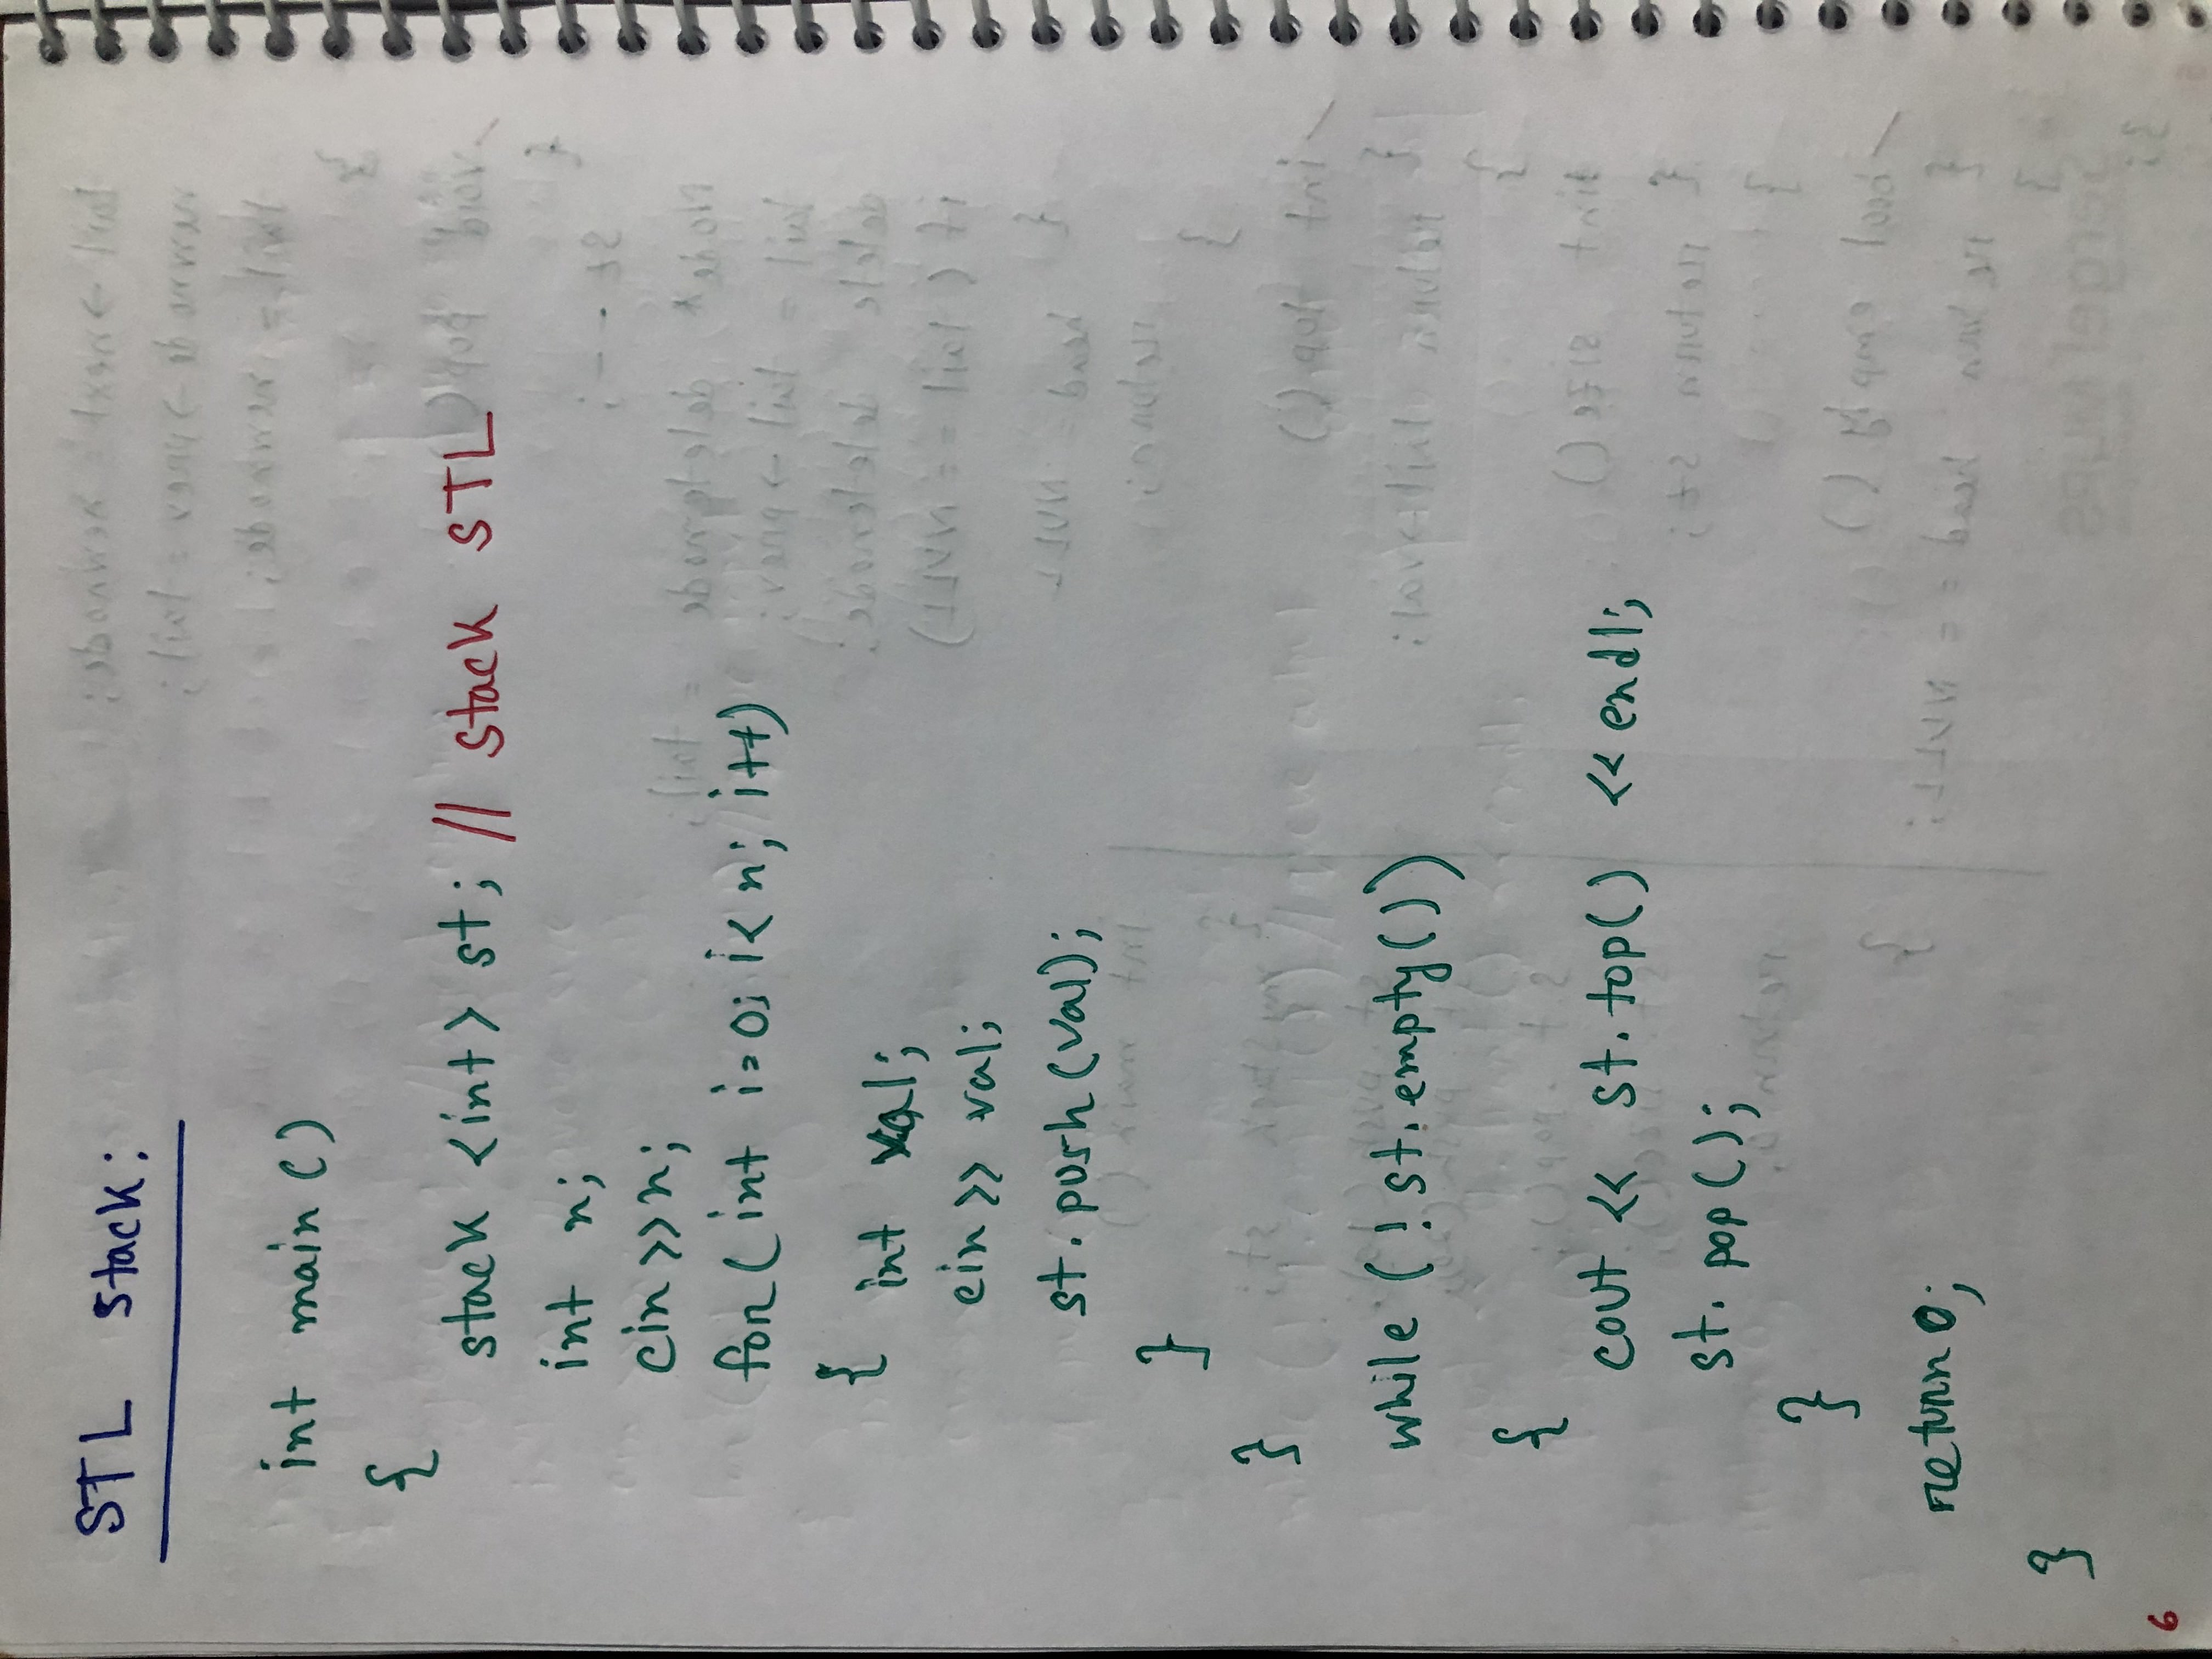 STL stack:
int main ()
{
stack <int> st; // stack STL
int n;
cin >> n;
for ( int i=0; i< n; i++)
{ int val;
cin >> val;
st. push (val);
}
}
while ( ! st. empty ( ) )
{
cout << st. top ( ) << endl;
st. pop ( );
}
return 0;
}
6